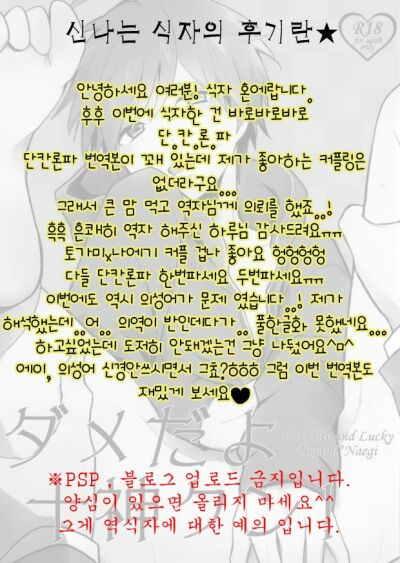 신나는 식자의 후기란★
R18
for adult only
안녕하세요 여러분! 식자 혼에랍니다.
후후 이번에 식자한 건 바로바로바로
단.칸.론.파
단칸론파 번역본이 꽤 있는데 제가 좋아하는 커플링은
없더라구요...
그래서 큰 맘 먹고 역자님게 의뢰를 했죠..!
흑흑 흔쾌히 역자 해주신 하루님 감사드려요ㅠㅠ
토가미x나에기 커플 겁나 좋아요 헝헝헝헝
다들 단칸론파 한번파세요 두번파세요ㅠㅠ
이번에도 역시 의성어가 문제 였습니다..! 제가
해석했는데..어.. 의역이 반인데다가.. 풀한글화 못했네요...
하고싶었는데 도저히 안돼겠는건 그냥 나뒀어요^ㅁ^
에이, 의성어 신경안쓰시면서 그쵸?ㅎㅎㅎ 그럼 이번 번역본도
재밌게 보세요♥
ダメだよ
the Elite and Lucky
Togami Naegi
十神クン!
※PSP , 블로그 업로드 금지입니다.
양심이 있으면 올리지 마세요^^
그게 역식자에 대한 예의 입니다.